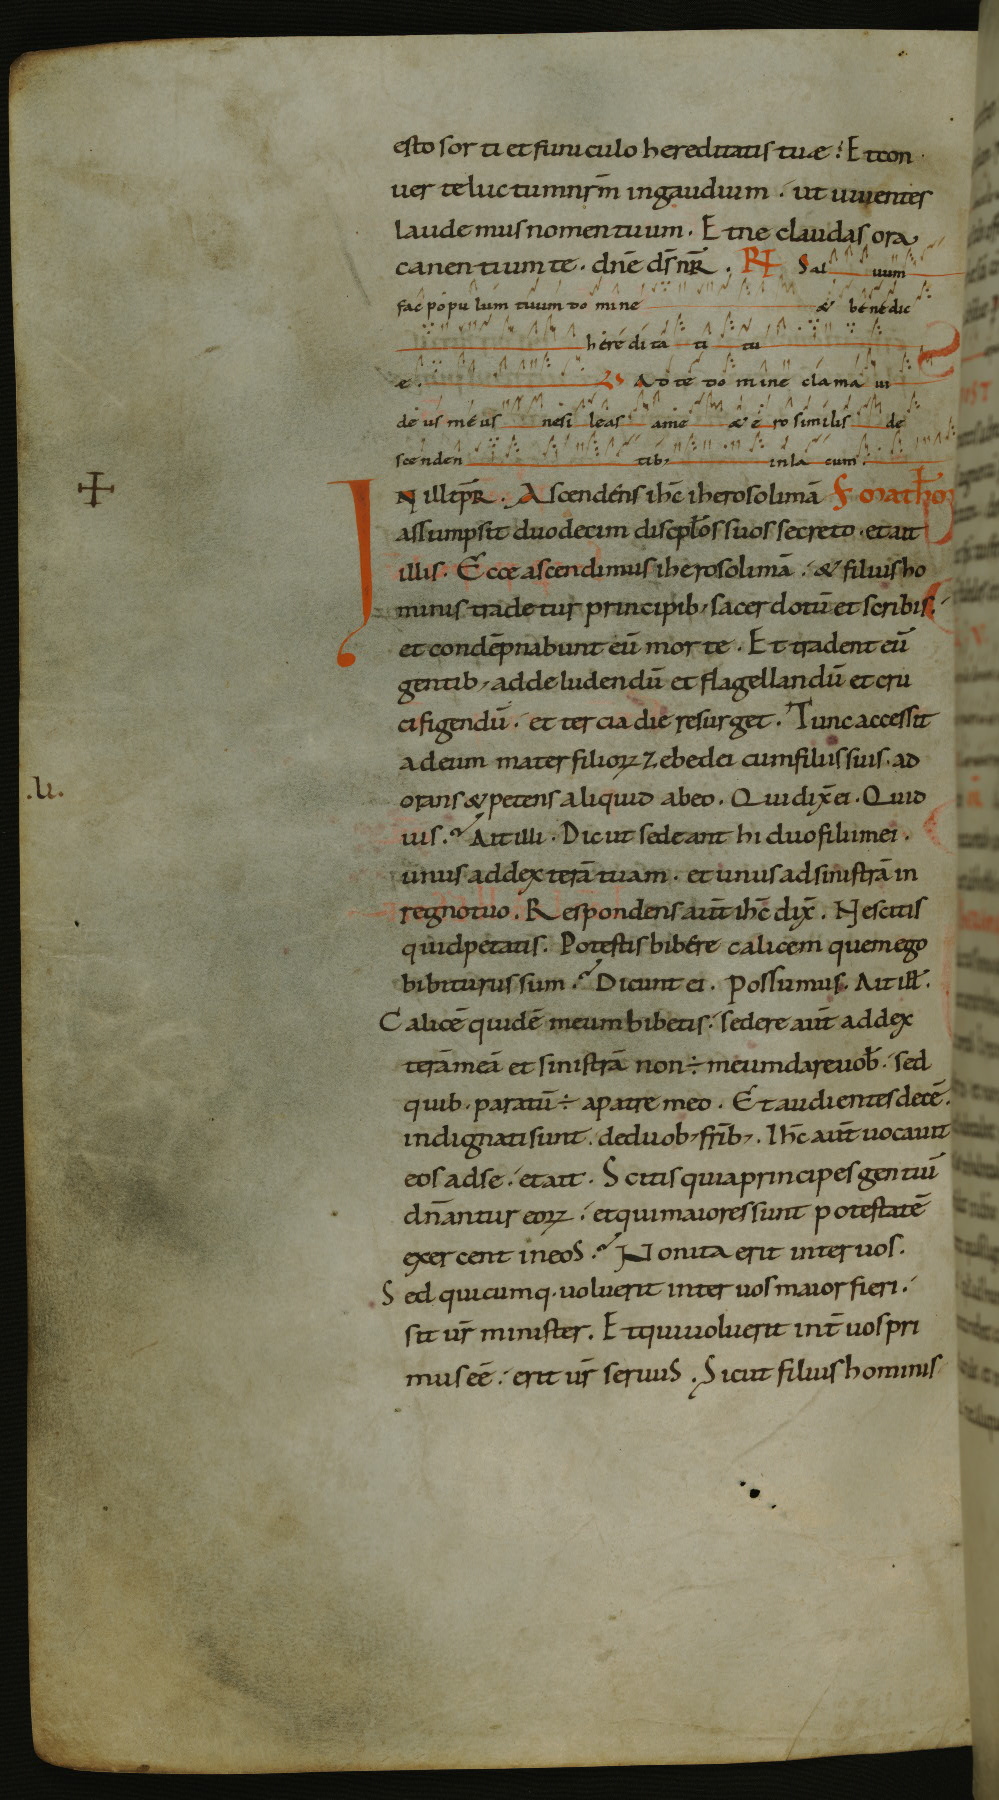 esto sorti et funiculo hereditatis tuae : Et con
uerte luctum nr̄m in gaudium . ut uiuentes
laudemus nomen tuum . Et ne claudas ora
canentium te . dn̄e ds̄ nr̄ . R Saluum
fac populum tuum domine & benedic
hereditati tu
e . V Ad te domine clamaui
deus meus ne sileas a me & ero similis de
scendentib; in lacum .
IN ill tp̄r . Ascendens ih̄c iherosolimā S matheo
assumpsit duodecim discipl̄os suos secreto . et ait
illis . Ecce ascendimus iherosolimā . & filius ho
minis tradetur principib; sacerdotū et scribis .
et condēpnabunt eū morte . Et tradent eū
gentib; ad deludendū et flagellandū et cru
cifigendū . et tercia die resurget . Tunc accessit
ad eum mater filioꝝ zebedei cum filiis suis . ad
orans & petens aliquid ab eo . Qui dix̄ ei . Quid
uis . Ait illi . Dic ut sedeant hi duo filii mei .
unus ad dexterā tuam . et unus ad sinistrā in
regno tuo . Respondens aut̄ ih̄c dix̄ . Nescitis
quid petatis . Potestis bibere calicem quem ego
bibiturus sum . Dicunt ei . Possumus . Ait ill̄ .
.u.
Calicē quidē meum bibetis . sedere aut̄ ad dex
terā meā et sinistrā non ÷ meum dare uob̄ . sed
quib . paratū ÷ a patre meo . Et audientes decē .
indignati sunt . de duob; fr̄ib; . Ih̄c aut̄ uocauit
eos ad se . et ait . Scitis quia principes gentiū
dn̄antur eoꝝ . et qui maiores sunt potestatē
exercent in eos . Non ita erit inter uos .
Sed quicumq . uoluerit inter uos maior fieri .
sit ur̄ minister . Et qui uoluerit int̄ uos pri
mus eē . erit ur̄ seruus . Sicut filius hominis